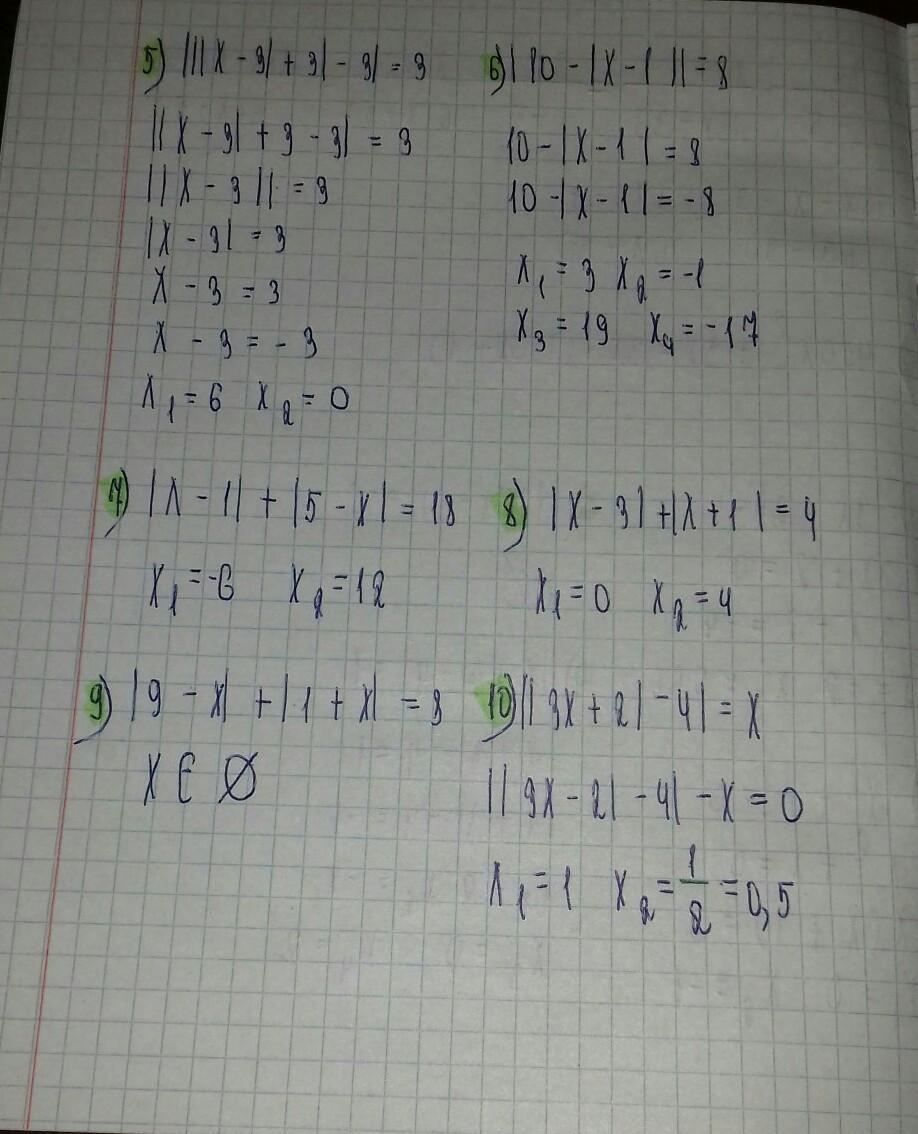 5) |||x - 3| + 3| - 3| = 3
||x - 3| + 3 - 3| = 3
||x - 3|| = 3
|x - 3| = 3
x - 3 = 3
x - 3 = - 3
x₁ = 6 x₂ = 0
6) |10 - |x - 1|| = 8
10 - |x - 1| = 8
10 - |x - 1| = -8
x₁ = 3 x₂ = -1
x₃ = 19 x₄ = -17
7) |x - 1| + |5 - x| = 18
x₁ = -6 x₂ = 12
8) |x - 3| + |x + 1| = 4
x₁ = 0 x₂ = 4
9) |9 - x| + |1 + x| = 8
x ∈ ∅
10) ||3x + 2| - 4| = x
||3x - 2| - 4| - x = 0
x₁ = 1 x₂ = 1/2 = 0,5